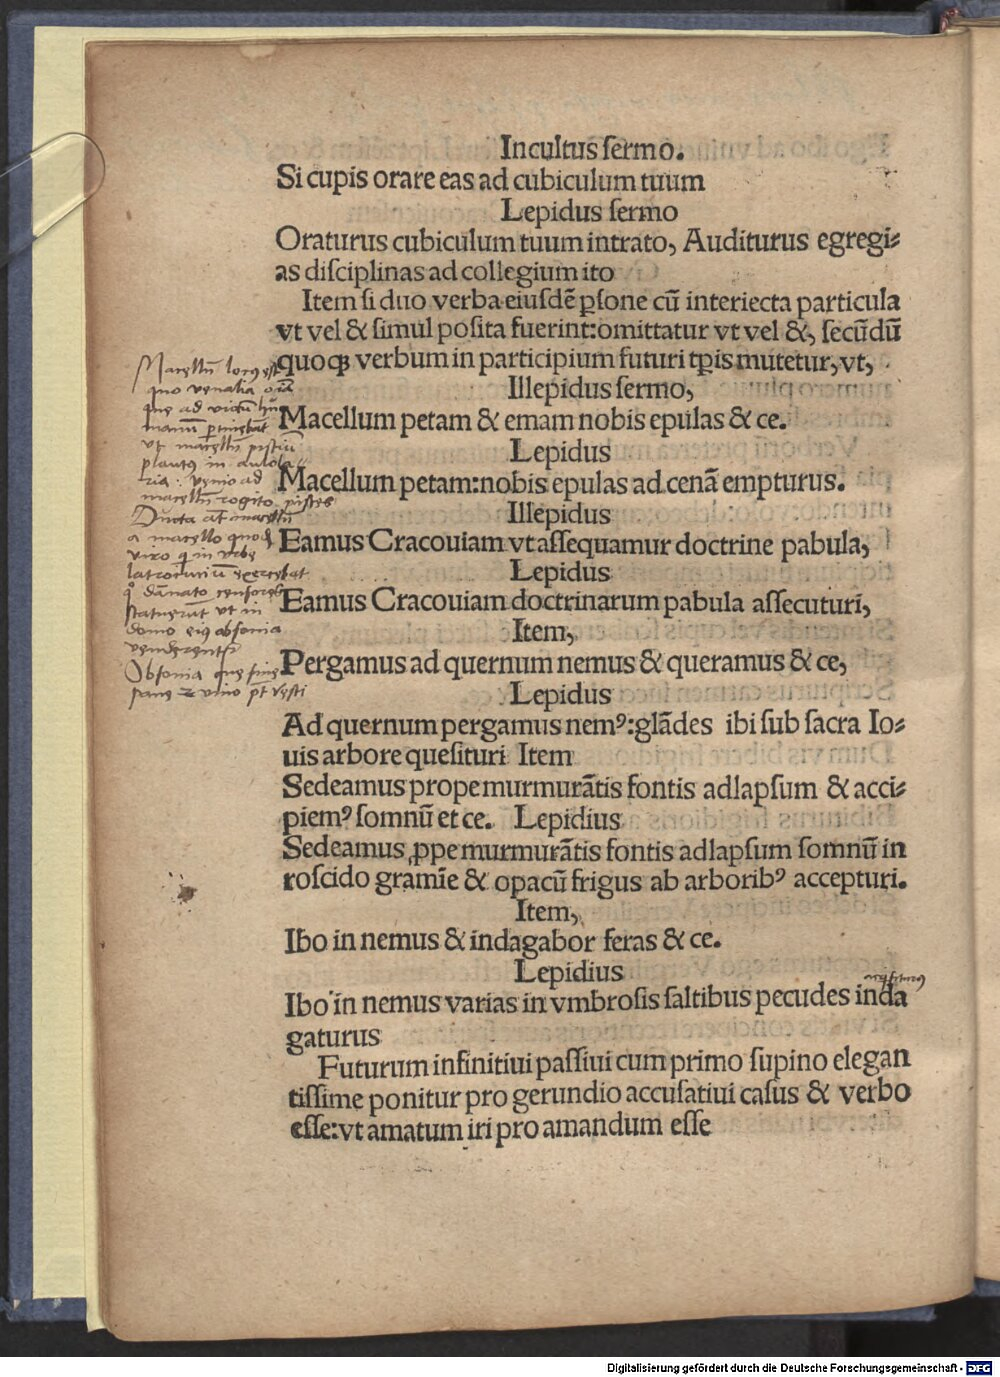 Incultus ſermo.
Si cupis orare eas ad cubiculum tuum
Lepidus ſermo
Oraturus cubiculum tuum intrato, Auditurus egregi⸗
as diſciplinas ad collegium ito
Item ſi duo verba eiuſdē ꝑſone cū interiecta particula
vt vel & ſimul poſita fuerint:omittatur vt vel &, ſecūdū
quoqꝫ verbum in participium futuri tꝑis mutetur, vt,
Illepidus ſermo,
Macellum petam & emam nobis epulas & ce.
Lepidus
Macellum petam:nobis epulas ad cenā empturus.
Illepidus
Eamus Cracouiam vt aſſequamur doctrine pabula,
Lepidus
Eamus Cracouiam doctrinarum pabula aſſecuturi,
Item,
Pergamus ad quernum nemus & queramus & ce,
Lepidus
Ad quernum pergamus nemꝰ:glādes ibi ſub ſacra Io⸗
uis arbore queſituri Item
Sedeamus prope murmurātis fontis adlapſum & acci⸗
piemꝰ ſomnū et ce. Lepidius
Sedeamus ꝓpe murmurātis fontis adlapſum ſomnū in
roſcido gramīe & opacū frigus ab arboribꝰ accepturi.
Item,
Ibo in nemus & indagabor feras & ce.
Lepidius
Ibo in nemus varias in vmbroſis ſaltibus pecudes inda
gaturus
Futurum infinitiui paſſiui cum primo ſupino elegan
tiſſime ponitur pro gerundio accuſatiui caſus & verbo
eſſe:vt amatum iri pro amandum eſſe
Macellū locꝰ
quo venalia
que ad victū
vt macellū
plautus in aulola
ria: venio ad
macellū rogito pisces
a macello
viro in vrbe
latrociniū exercebat
dānato
statuerūt vt in
domo eiꝰ obsonia
venderentur
Obsonia que sine
pane vino
Digitalisierung gefördert durch die Deutsche Forschungsgemeinschaft - DFG